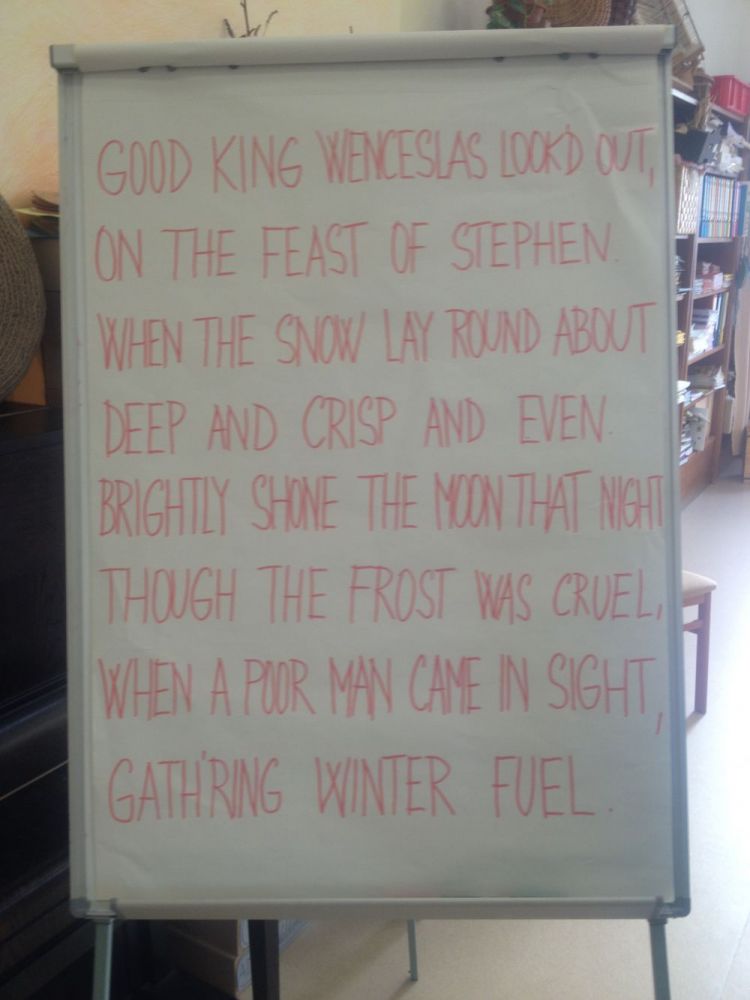 GOOD KING WENCESLAS LOOK'D OUT,
ON THE FEAST OF STEPHEN.
WHEN THE SNOW LAY ROUND ABOUT
DEEP AND CRISP AND EVEN.
BRIGHTLY SHONE THE MOON THAT NIGHT
THOUGH THE FROST WAS CRUEL,
WHEN A POOR MAN CAME IN SIGHT,
GATH'RING WINTER FUEL.